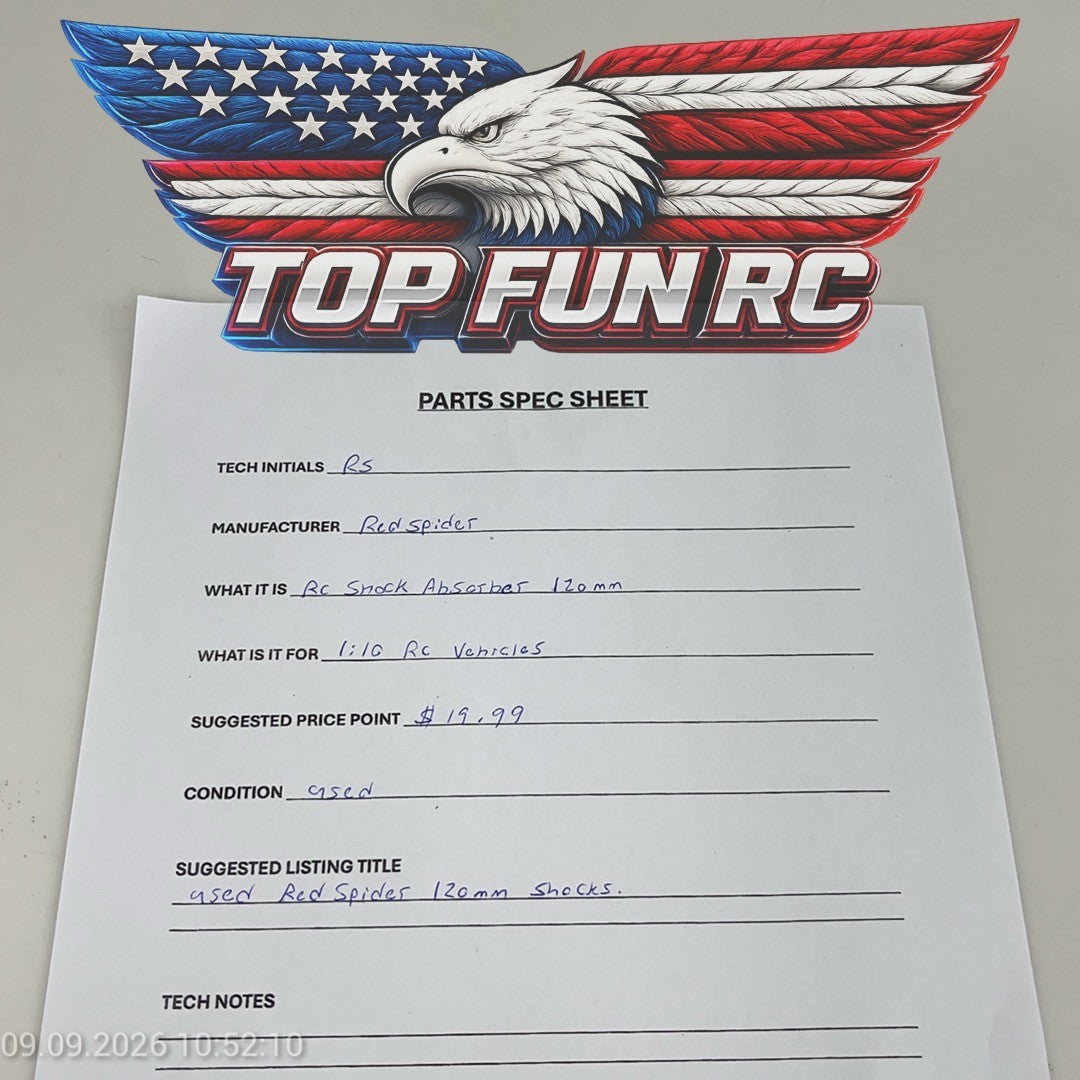 TOP FUN RC
PARTS SPEC SHEET
TECH INITIALS RS
MANUFACTURER Redspider
WHAT IT IS Rc Shock Absorber 120mm
WHAT IS IT FOR 1:10 Rc Vehicles
SUGGESTED PRICE POINT $19.99
CONDITION used
SUGGESTED LISTING TITLE
used Red Spider 120mm Shocks.
TECH NOTES
09.09.2026 10:52:10